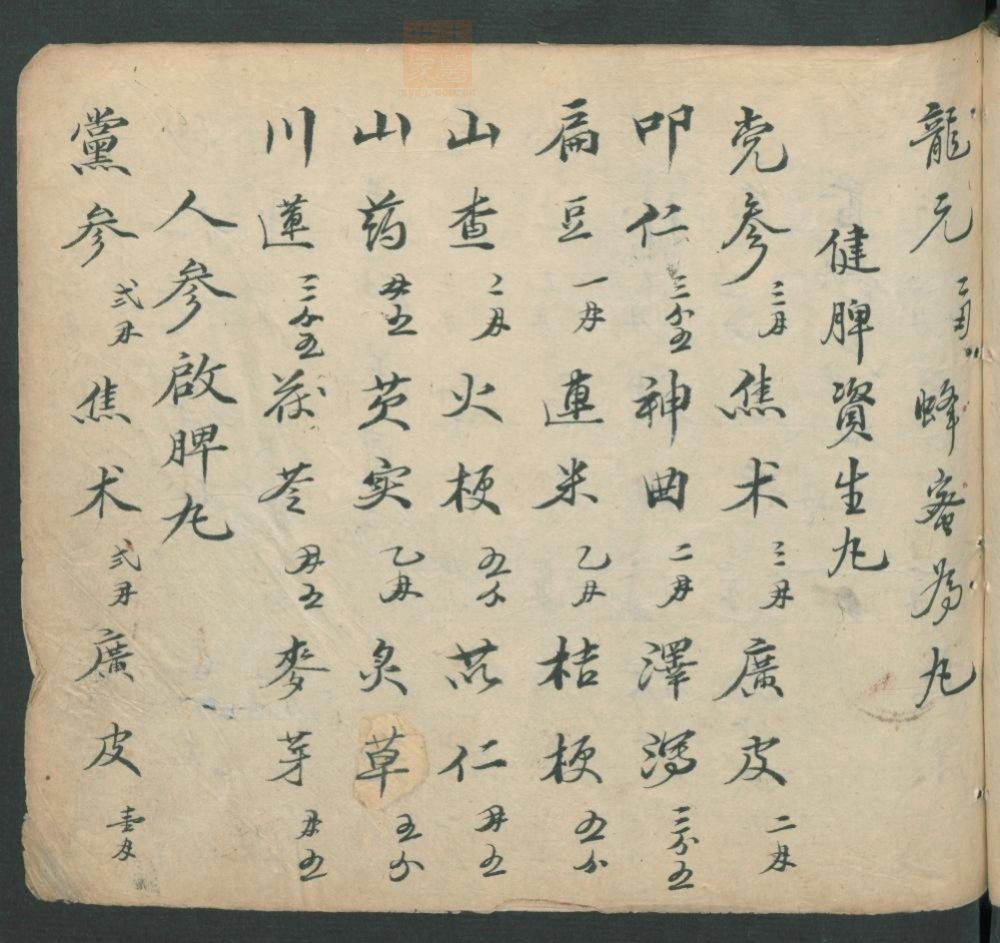 龍元二两 蜂蜜為丸
健脾資生丸
党参三两 焦术三两 廣皮二两
叩仁三分五 神曲二两 澤瀉三分五
扁豆一两 連米乙两 桔梗五分
山查二两 火梗五分 苡仁两五
山药两五 芡实乙两 炙草五分
川蓮三分五 茯苓两五 麥芽两五
人参啟脾丸
黨参弍两 焦术弍两 廣皮壹两